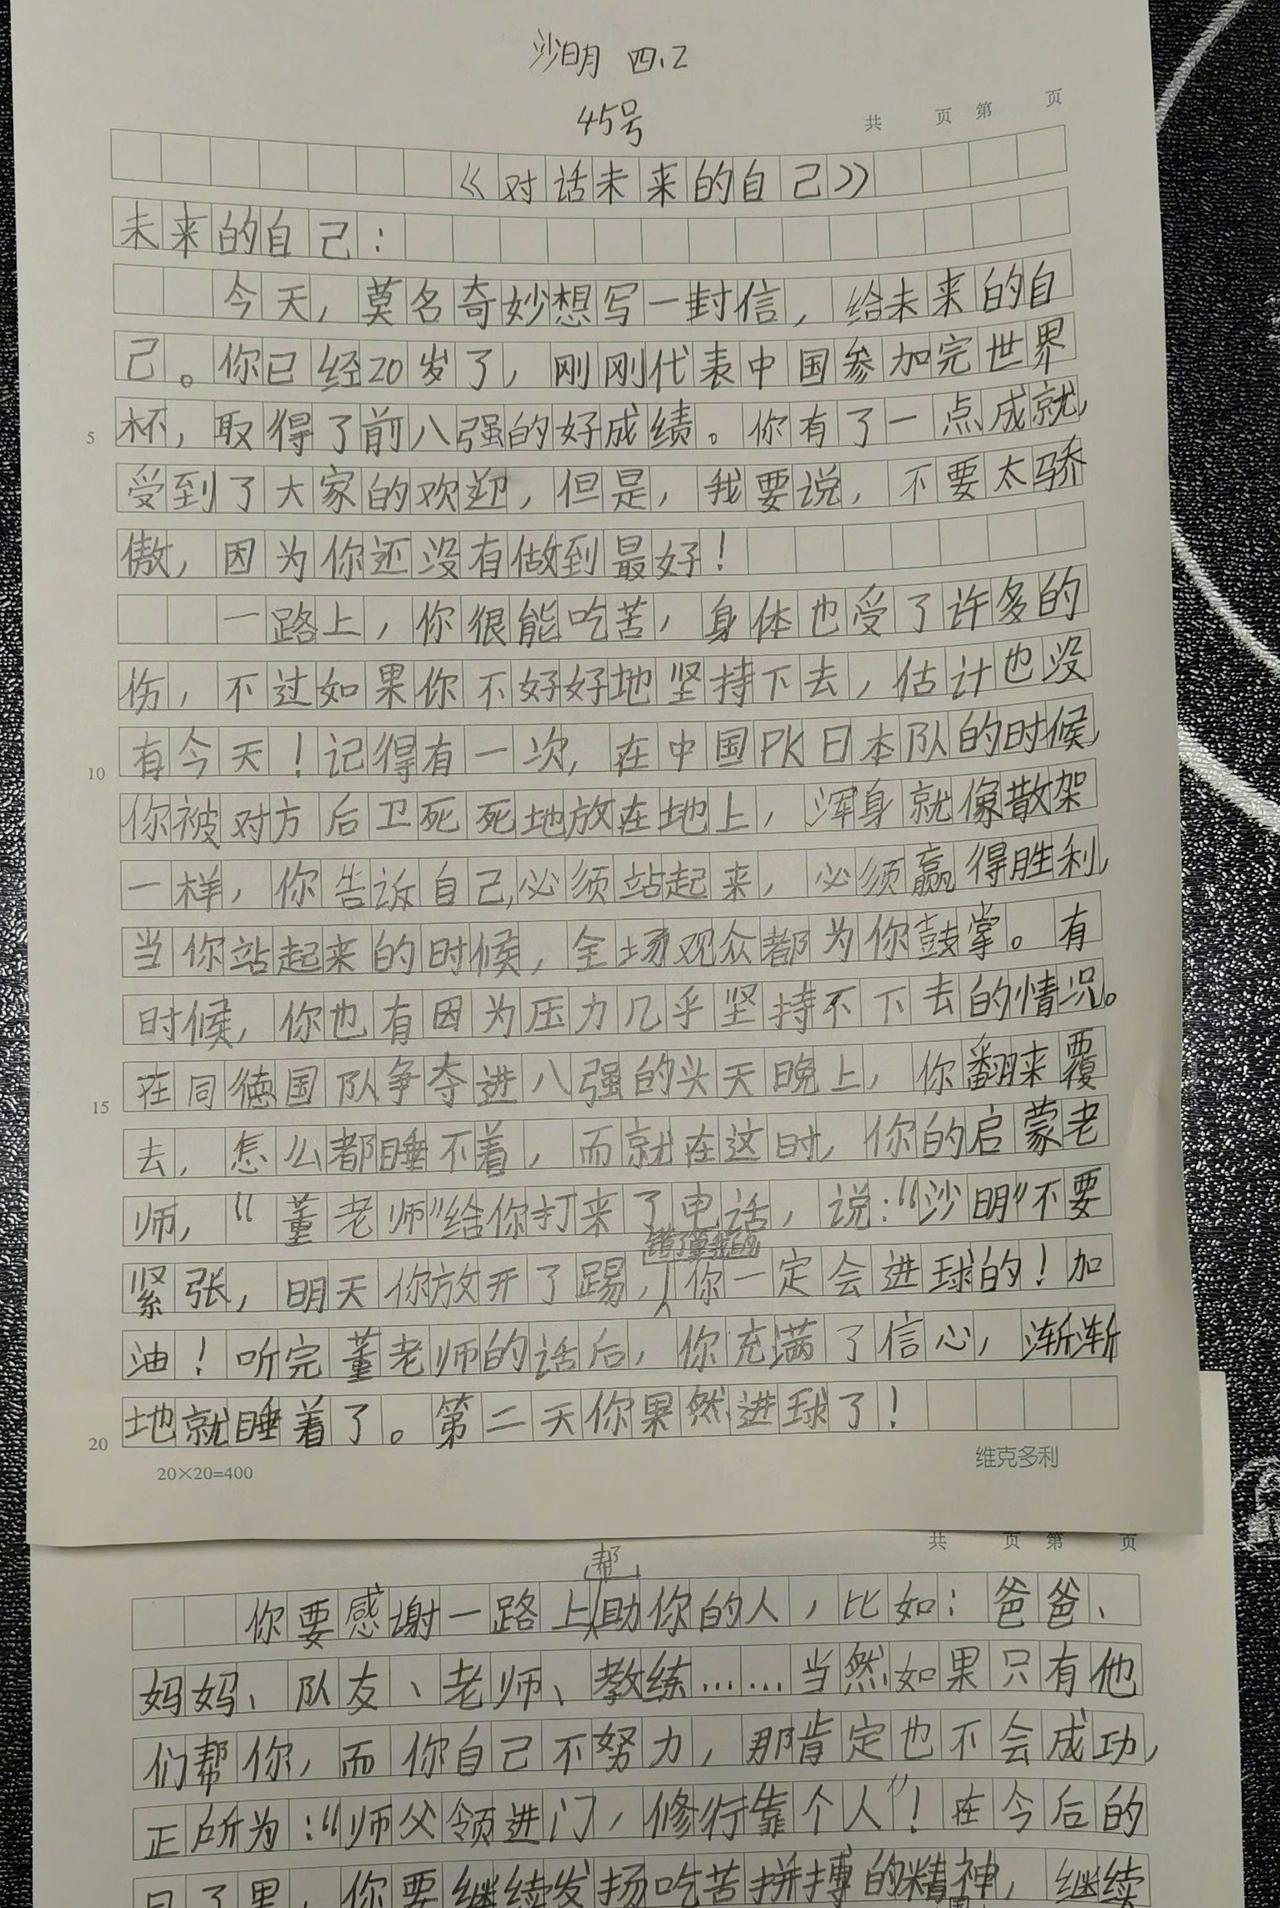 沙明 四.2
45号
共 页 第 页
《对话未来的自己》
未来的自己：
今天，莫名奇妙想写一封信，给未来的自
己。你已经20岁了，刚刚代表中国参加完世界
5 杯，取得了前八强的好成绩。你有了一点成就，
受到了大家的欢迎，但是，我要说，不要太骄
傲，因为你还没有做到最好！
一路上，你很能吃苦，身体也受了许多的
伤，不过如果你不好好地坚持下去，估计也没
10 有今天！记得有一次，在中国PK日本队的时候，
你被对方后卫死死地放在地上，浑身就像散架
一样，你告诉自己，必须站起来，必须赢得胜利，
当你站起来的时候，全场观众都为你鼓掌。有
时候，你也有因为压力几乎坚持不下去的情况。
15 在同德国队争夺进八强的头天晚上，你翻来覆
去，怎么都睡不着，而就在这时，你的启蒙老
师，“董老师”给你打来了电话，说：“沙明”不要
紧张，明天你放开了踢，你一定会进球的！加
油！听完董老师的话后，你充满了信心，渐渐
20 地就睡着了。第二天你果然进球了！
20×20=400 维克多利
共 页 第 页
你要感谢一路上帮助你的人，比如：爸爸、
妈妈、队友、老师、教练……当然如果只有他
们帮你，而你自己不努力，那肯定也不会成功，
正所为：“师父领进门，修行靠个人”！在今后的
日子里，你要继续发扬吃苦拼搏的精神，继续